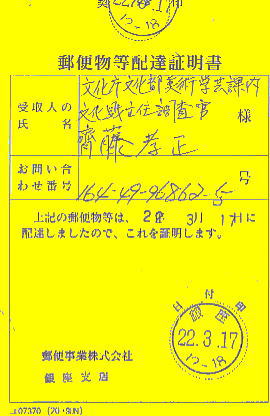 22.3.17
12-18
郵便物等配達証明書
受取人の氏名
文化庁文化部美術学芸課内
文化戝主任調査官
齊藤孝正 様
お問い合わせ番号
164-49-96862-5 号
上記の郵便物等は、22年 3月 17日に
配達しましたので、これを証明します。
日付印
銀座
22.3.17
12-18
郵便事業株式会社
銀座支店
07370 (20・3UN)